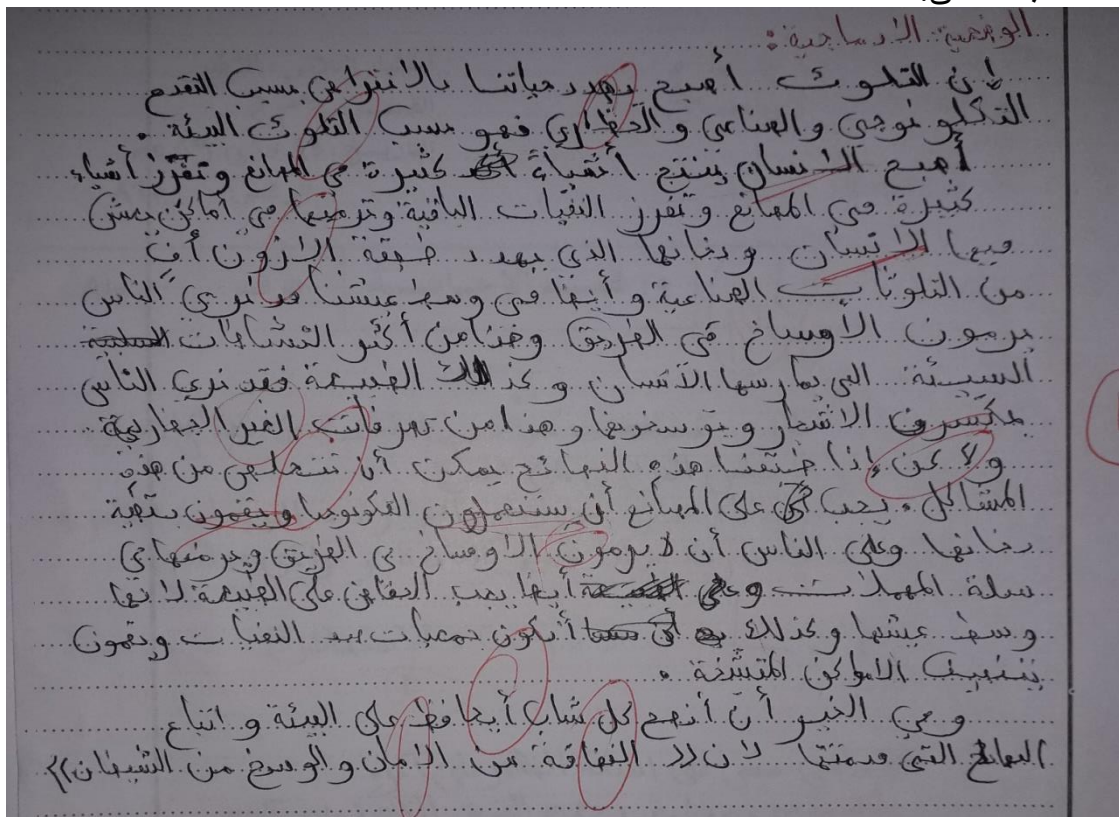 الوضعية الادماجية :
إن التلوث أصبح يهدد حياتنا بالانقراض بسبب التقدم
التكلونوجي والصناعي و الحظاري فهو سبب التلوث البيئة .
أصبح الانسان ينتج أشياءً كثيرة في المصانع وتفرّز أشياء
كثيرة في المصانع وتفرز النفيات الباقية وترميها في أماكن يعش
فيها الانسان ودخانها الذي يهدد طبقة الازون
من التلوثات الصناعية وأيضا في وسط عيشنا قد نرى الناس
يرمون الاوساخ في الطريق وهذا من أكثر النشاطات
السيئة التي يمارسها الانسان وكذالك الطبيعة فقد نرى الناس
يكسرون الاشجار ويوسخونها وهذا من تصرفات الغير الحضارية
ولاكن إذا طبقنا هذه النصائح يمكن أن نتخلص من هذه
المشاكل . يجب على المصانع أن يستعملون التكونوجيا ويقمون بتصفية
دخانها وعلى الناس أن لا يرمون الاوساخ في الطريق ويرمنها في
سلة المهملات وعلى أيضا يجب الحفاض على الطبيعة لانها
وسط عيشها وكذلك أن يكون جمعيات النفيات ويقمون
بتنضيف الاماكن المتسخة .
وفي الخير أن أنصح كل شاب أيحافظ على البيئة و اتباع
النصائح التي قدمتها لان (( النضافة من الامان والوسخ من الشيطان ))